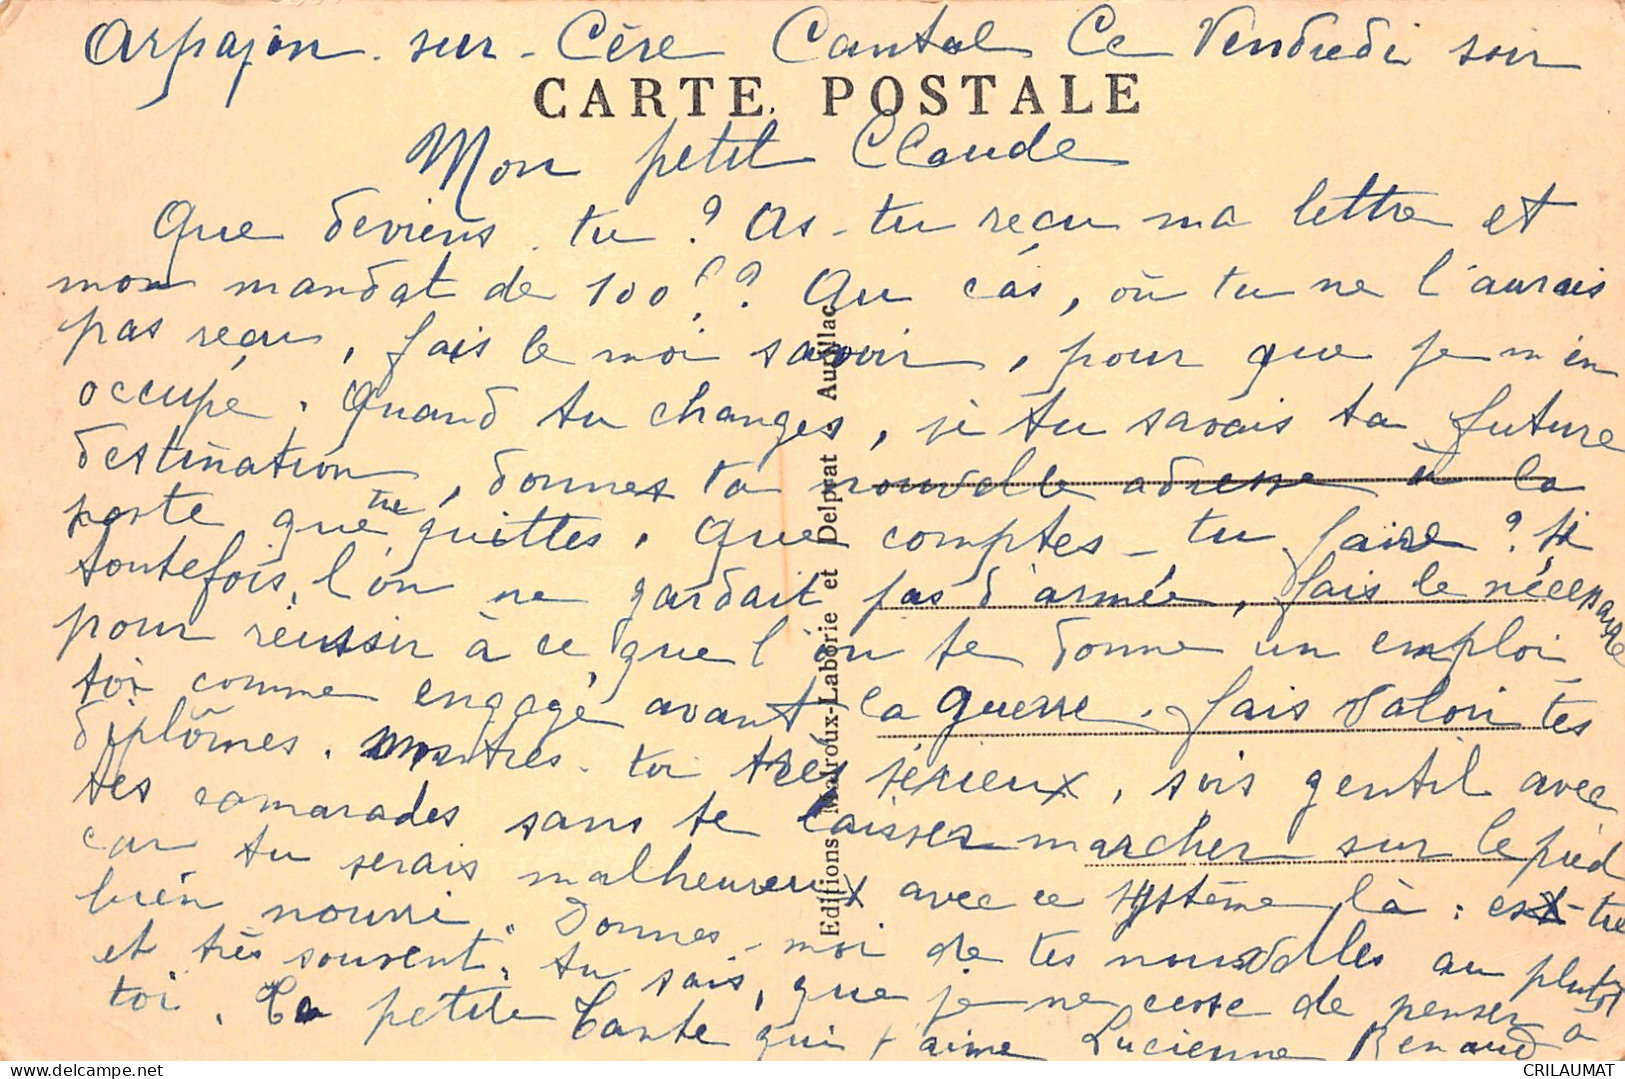 Arpajon-sur-Cère Cantal Ce Vendredi soir
CARTE POSTALE
Mon petit Claude
Que deviens-tu ? As-tu reçu ma lettre et
mon mandat de 100f ? Au cas, où tu ne l'aurais
pas reçu, fais le moi savoir, pour que je m'en
occupe. Quand tu changes, si tu savais ta future
destination, donnes ta nouvelle adresse à la
poste que tu quittes. Que comptes-tu faire ? Si
toutefois, l'on ne gardait pas d'armée, fais le nécessaire
pour réussir à ce que l'on te donne un emploi
toi comme engagé avant la guerre. Fais valoir tes
diplômes. Montres-toi très sérieux, sois gentil avec
tes camarades sans te laisser marcher sur le pied
car tu serais malheureux avec ce système là : es-tu
bien nourri. Donnes-moi de tes nouvelles au plutôt
et très souvent ; tu sais, que je ne cesse de penser à
toi. Ta petite Tante qui t'aime Lucienne Renaud
Editions Malroux-Laborie et Delprat Aurillac
CRILAUMAT